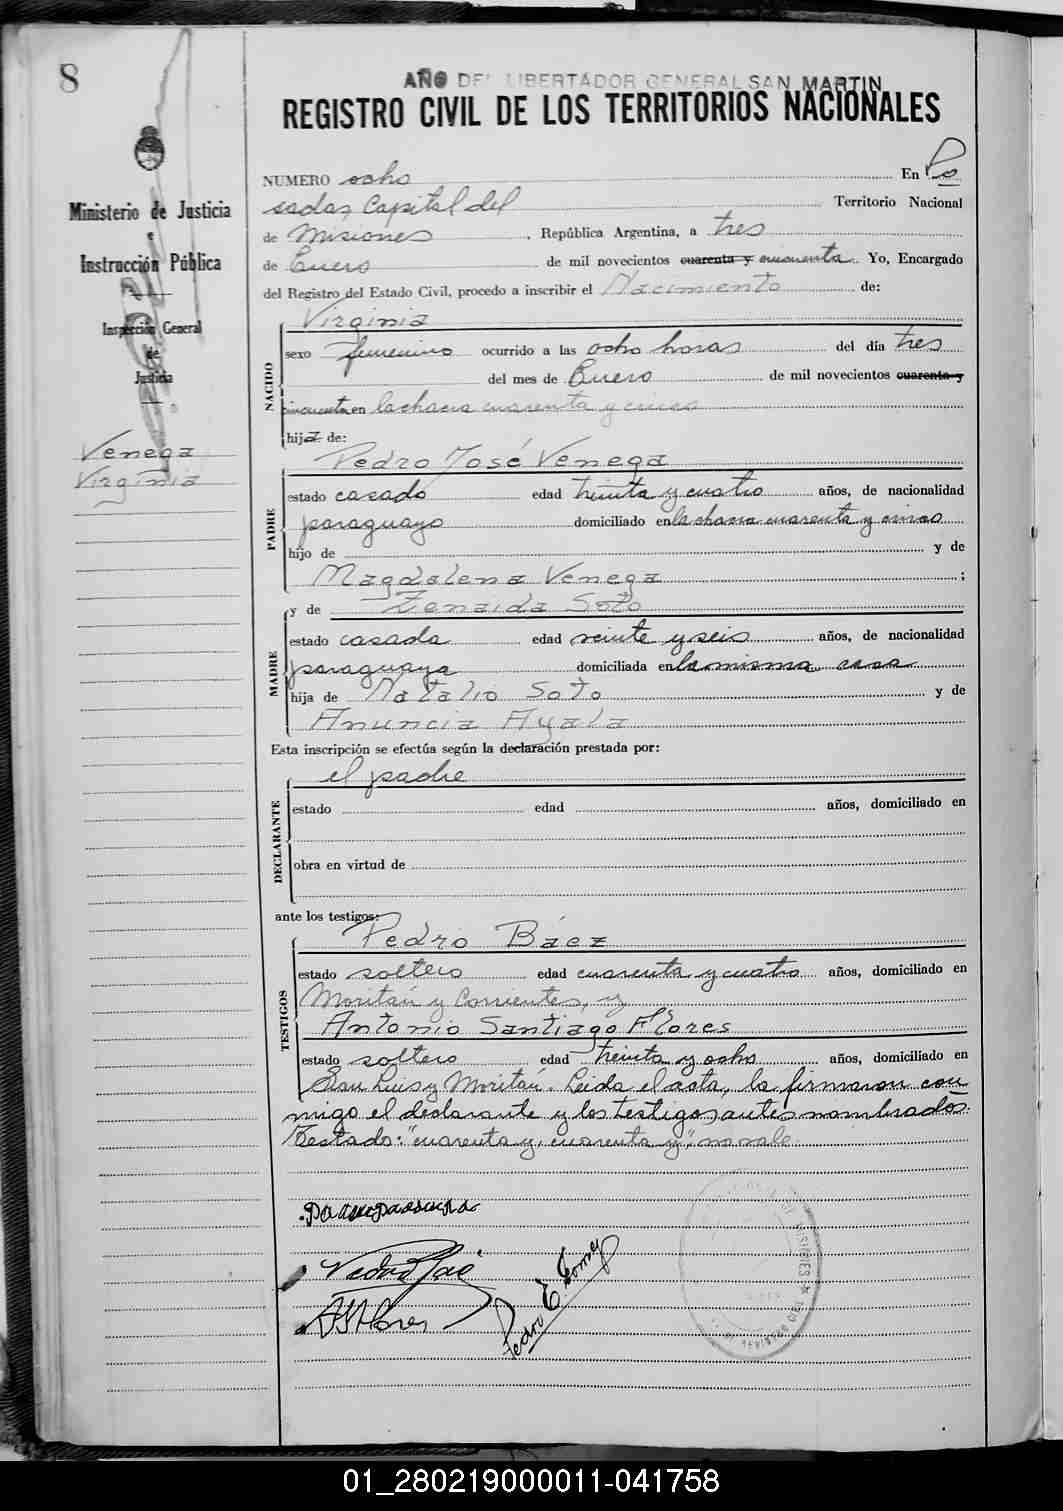 8
AÑO DEL LIBERTADOR GENERAL SAN MARTIN
REGISTRO CIVIL DE LOS TERRITORIOS NACIONALES
Ministerio de Justicia
e
Instrucción Pública
Inspección General
de
Justicia
Venega
Virginia
NUMERO ocho En Po
sadas, Capital del Territorio Nacional
de Misiones, República Argentina, a tres
de Enero de mil novecientos cuarenta y cincuenta. Yo, Encargado
del Registro del Estado Civil, procedo a inscribir el Nacimiento de:
NACIDO
Virginia
sexo femenino ocurrido a las ocho horas del día tres
del mes de Enero de mil novecientos cuarenta y
cincuenta en la chacra cuarenta y cinco
hija de:
PADRE
Pedro José Venega
estado casado edad treinta y cuatro años, de nacionalidad
paraguayo domiciliado en la chacra cuarenta y cinco
hijo de y de
Magdalena Venega ;
y de Zenaida Soto
MADRE
estado casada edad veinte y seis años, de nacionalidad
paraguaya domiciliada en la misma casa
hija de Natalio Soto y de
Anuncia Ayala
Esta inscripción se efectúa según la declaración prestada por:
DECLARANTE
el padre
estado edad años, domiciliado en
obra en virtud de
ante los testigos:
TESTIGOS
Pedro Báez
estado soltero edad cuarenta y cuatro años, domiciliado en
Moritán y Corrientes, y
Antonio Santiago Flores
estado soltero edad treinta y ocho años, domiciliado en
San Luis y Moritán. Leida el acta, la firmaron con
migo el declarante y los testigos antes nombrados.
Testado: "cuarenta y, cuarenta y", no vale.
Pedro Báez
A S Flores
Pedro E. Gomez
01_280219000011-041758